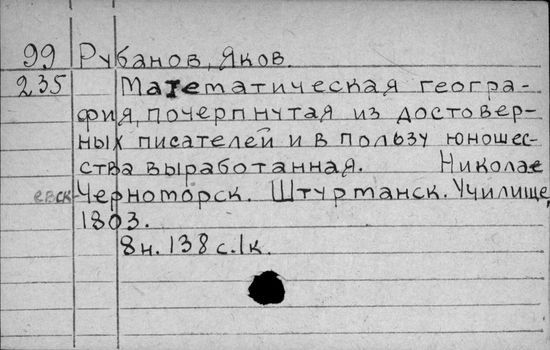 99 Рубанов, Яков.
235 Математическая геогра-
фия, почерпнутая из достовер-
ных писателей и в пользу юношес-
ства выработанная. Николае
евск-Черноморск. Штурманск. Училище,
1803.
8н. 138 с. 1к.